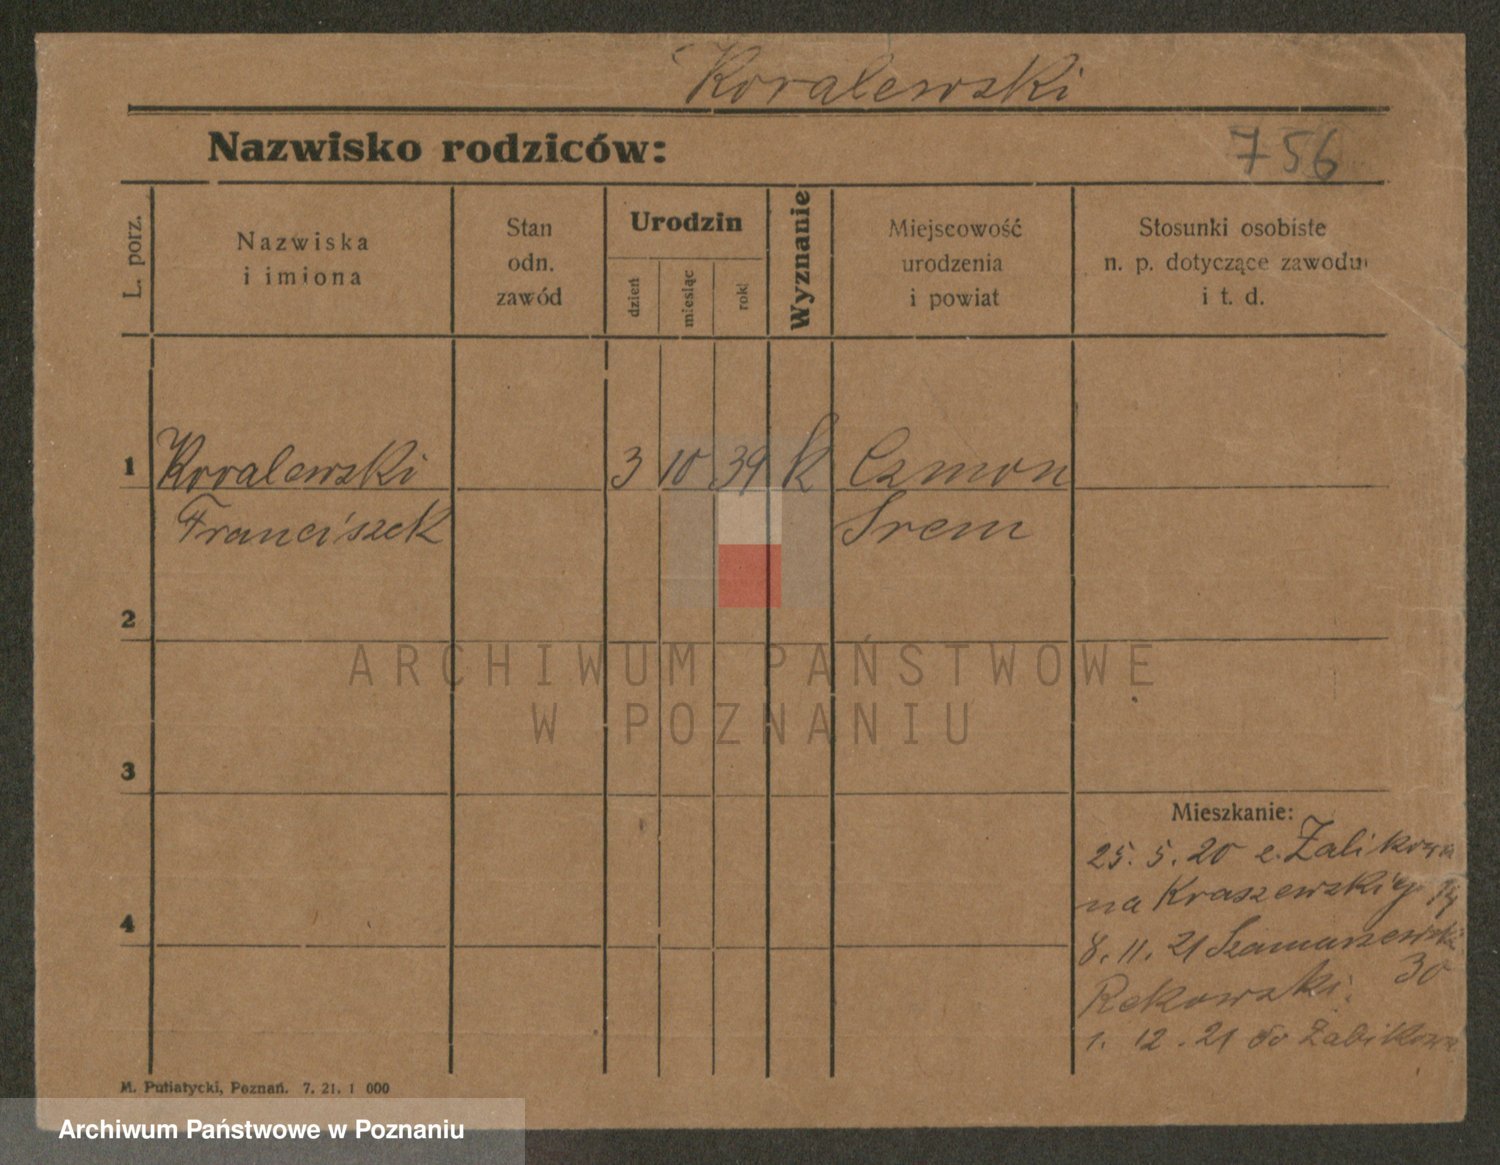 Kowalewski
Nazwisko rodziców:
756
L. porz.
Nazwiska
i imiona
Stan
odn.
zawód
Urodzin
dzień
miesiąc
rok
Wyznanie
Miejscowość
urodzenia
i powiat
Stosunki osobiste
n. p. dotyczące zawodu
i t. d.
1 Kowalewski 3 10 39 k Czmon
Franciszek Srem
2
3
4
Mieszkanie:
25. 5. 20 z Żabikowa
na Kraszewskiego 14
8. 11. 21 Szamarzewski
30
Rekowski.
1. 12. 21 do Żabikowa
M. Putiatycki, Poznań. 7. 21. 1 000
ARCHIWUM PAŃSTWOWE
W POZNANIU
Archiwum Państwowe w Poznaniu